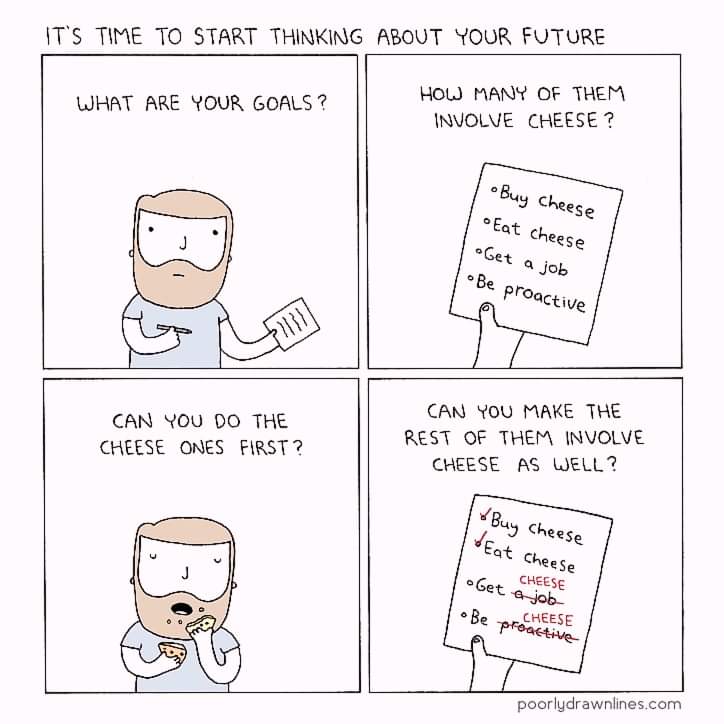 IT'S TIME TO START THINKING ABOUT YOUR FUTURE
WHAT ARE YOUR GOALS?
HOW MANY OF THEM
INVOLVE CHEESE?
Buy cheese
Eat cheese
Get a job
Be proactive
CAN YOU DO THE
CHEESE ONES FIRST?
CAN YOU MAKE THE
REST OF THEM INVOLVE
CHEESE AS WELL?
Buy cheese
Eat cheese
CHEESE
Get a job
CHEESE
Be proactive
poorlydrawnlines.com